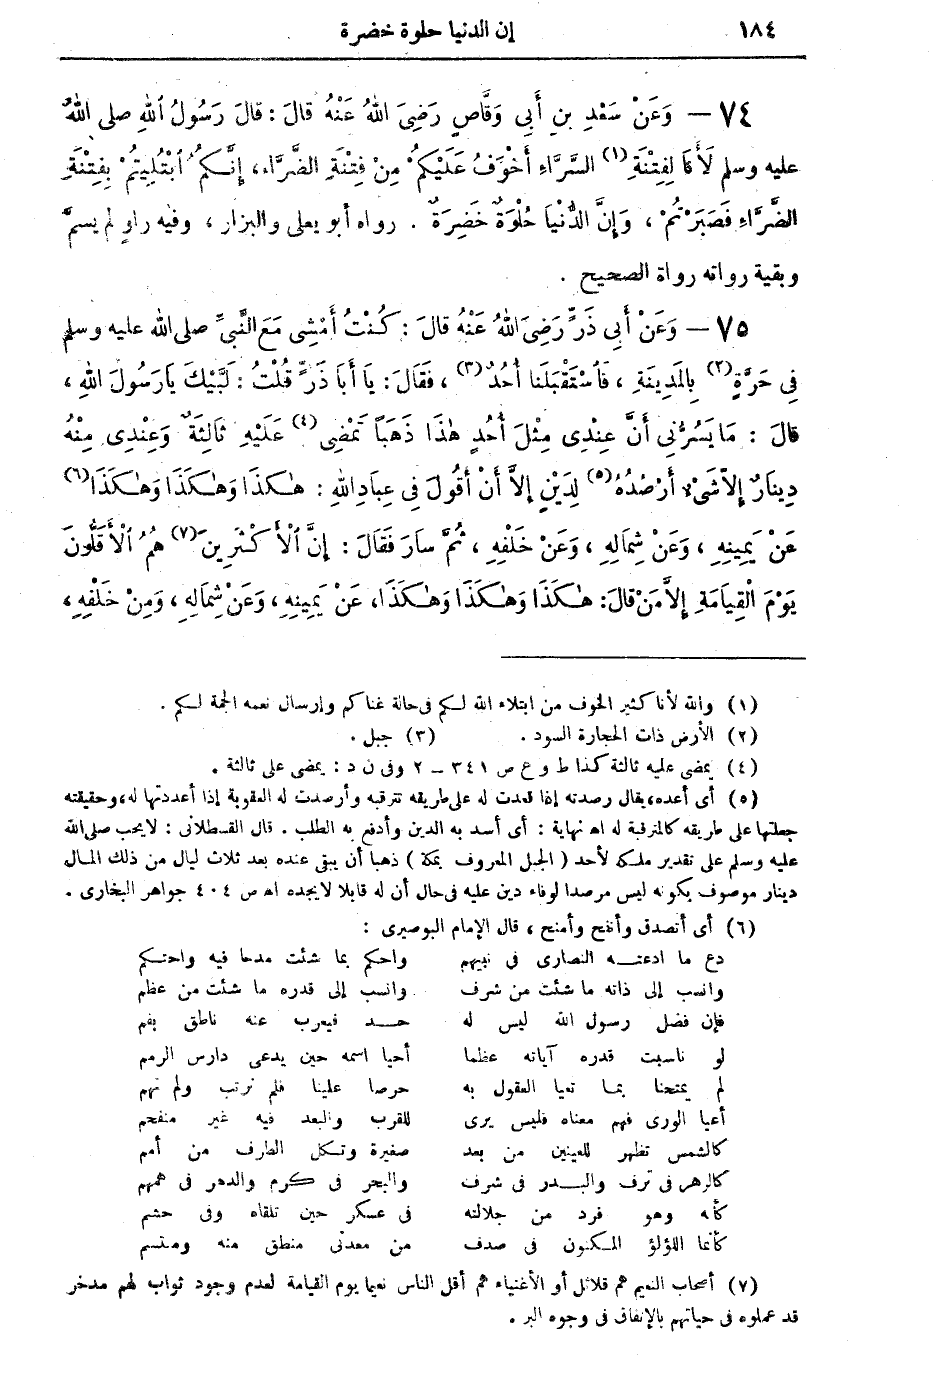 ١٨٤ إن الدنيا حلوة خضرة
٧٤ — وَعَنْ سَعْدِ بنِ أَبِى وَقَّاصٍ رَضِىَ اللهُ عَنْهُ قالَ: قالَ رَسُولُ اللهِ صلى اللهُ
عليه وسلم لَأَنَا لِفِتْنَةِ (١) السَّرَّاءِ أَخْوَفُ عَلَيْكُمْ مِنْ فِتْنَةِ الضَّرَّاءِ، إِنَّكُمُ ابْتُلِيتُمْ بِفِتْنَةِ
الضَّرَّاءِ فَصَبَرْتُمْ ، وَإِنَّ الدُّنْيَا حُلْوَةٌ خَضِرَةٌ . رواه أبو يعلى والبزار ، وفيه راوٍ لم يسمَّ
وبقية رواته رواة الصحيح .
٧٥ — وَعَنْ أَبِى ذَرٍّ رَضِىَ اللهُ عَنْهُ قالَ : كُنْتُ أَمْشِى مَعَ النَّبِىِّ صلى الله عليه وسلم
فِى حَرَّةٍ (٢) بِالمَدِينَةِ ، فَاسْتَقْبَلَنَا أُحُدٌ (٣) ، فَقَالَ: يَا أَبَا ذَرٍّ قُلْتُ : لَبَّيْكَ يَارَسُولَ اللهِ ،
قالَ : مَا يَسُرُّنِى أَنَّ عِنْدِى مِثْلَ أُحُدٍ هٰذَا ذَهَباً تَمْضِى (٤) عَلَيْهِ ثَالِثَةٌ وَعِنْدِى مِنْهُ
دِينَارٌ إِلاَّ شَىْءٌ أَرْصُدُهُ (٥) لِدَيْنٍ إِلاَّ أَنْ أَقُولَ فِى عِبَادِ اللهِ : هٰكَذَا وَهٰكَذَا وَهٰكَذَا (٦)
عَنْ يَمِينِهِ ، وَعَنْ شِمَالِهِ ، وَعَنْ خَلْفِهِ ، ثُمَّ سَارَ فَقَالَ : إِنَّ الْأَكْثَرِينَ (٧) هُمُ الْأَقَلُّونَ
يَوْمَ الْقِيَامَةِ إِلاَّ مَنْ قالَ: هٰكَذَا وَهٰكَذَا وَهٰكَذَا، عَنْ يَمِينِهِ ، وَعَنْ شِمَالِهِ ، وَمِنْ خَلْفِهِ ،
(١) والله لأنا كثير الخوف من ابتلاء الله لكم فى حالة غناكم وإرسال نعمه الجمة لكم .
(٢) الأرض ذات الحجارة السود . (٣) جبل .
(٤) يمضى عليه ثالثة كذا ط و ع ص ٣٤١ – ٢ وفى ن د : يمضى على ثالثة .
(٥) أى أعده، يقال رصدته إذا قعدت له على طريقه تترقبه وأرصدت له العقوبة إذا أعددتها له، وحقيقته
جعلتها على طريقه كالمترقبة له اهـ نهاية : أى أسد به الدين وأدفع به الطلب . قال القسطلانى : لايحب صلى الله
عليه وسلم على تقدير ملكه لأحد ( الجبل المعروف بمكة ) ذهبا أن يبقى عنده بعد ثلاث ليال من ذلك المال
دينار موصوف بكونه ليس مرصدا لوفاء دين عليه فى حال أن له قابلا لايجده اهـ ص ٤٠٤ جواهر البخارى .
(٦) أى أتصدق وأنفح وأمنح ، قال الإمام البوصيرى :
دع ما ادعتـــه النصارى فى نبيهم واحكم بما شئت مدحا فيه واحتكم
وانسب إلى ذاته ما شئت من شرف وانسب إلى قدره ما شئت من عظم
فإن فضل رسول الله ليس له حـــد فيعرب عنه ناطق بفم
لو ناسبت قدره آياته عظما أحيا اسمه حين يدعى دارس الرمم
لم يمتحنا بما تعيا العقول به حرصا علينا فلم نرتب ولم نهم
أعيا الورى فهم معناه فليس يرى للقرب والبعد فيه غير منفحم
كالشمس تظهر للعينين من بعد صغيرة وتكل الطرف من أمم
كالزهر فى ترف والبـــدر فى شرف والبحر فى كرم والدهر فى همم
كأنه وهو فرد من جلالته فى عسكر حين تلقاه وفى حشم
كأنما اللؤلؤ المكنون فى صدف من معدنى منطق منه ومبتسم
(٧) أصحاب النعيم هم قلائل أو الأغنياء هم أقل الناس نعيما يوم القيامة لعدم وجود ثواب لهم مدخر
قد عملوه فى حياتهم بالإنفاق فى وجوه البر .